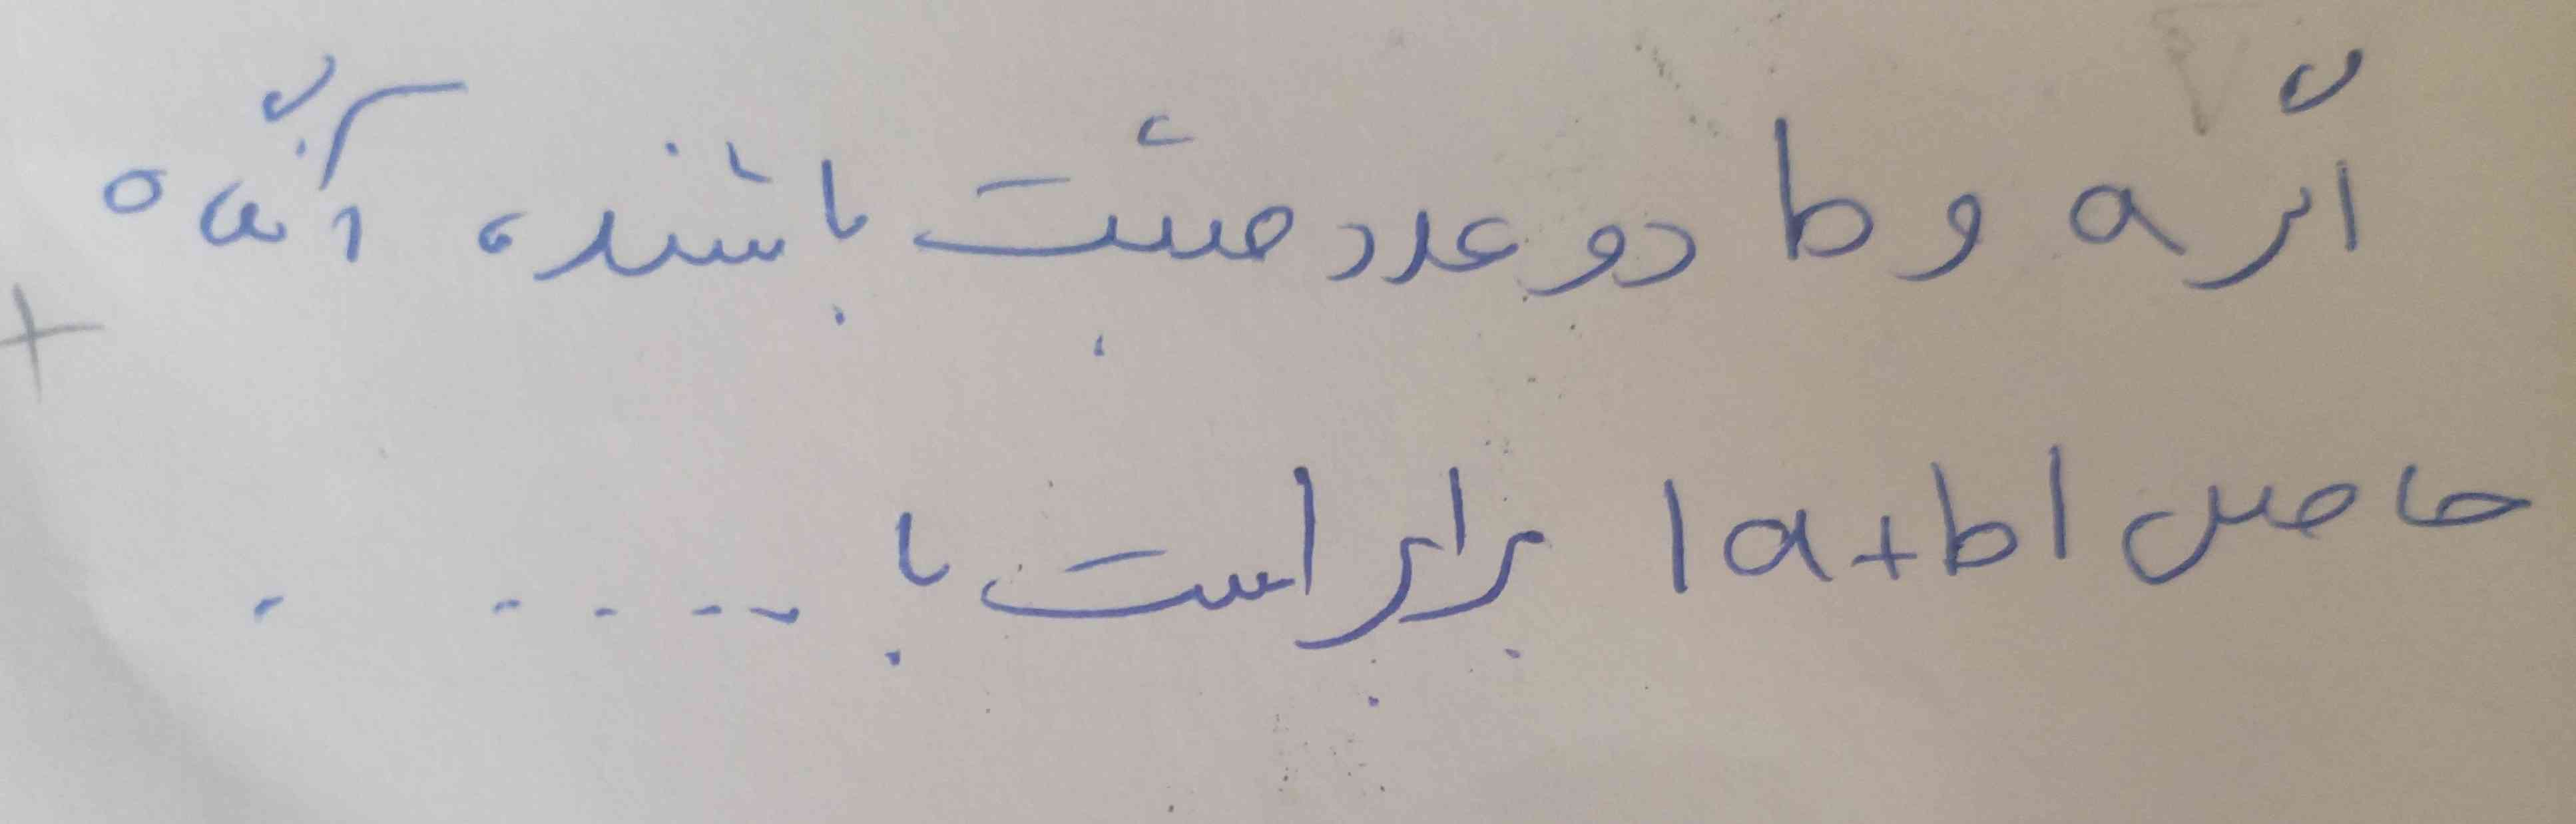 اگر a و b دو عدد مثبت باشند، آنگاه
حاصل |a+b| برابر است با .....